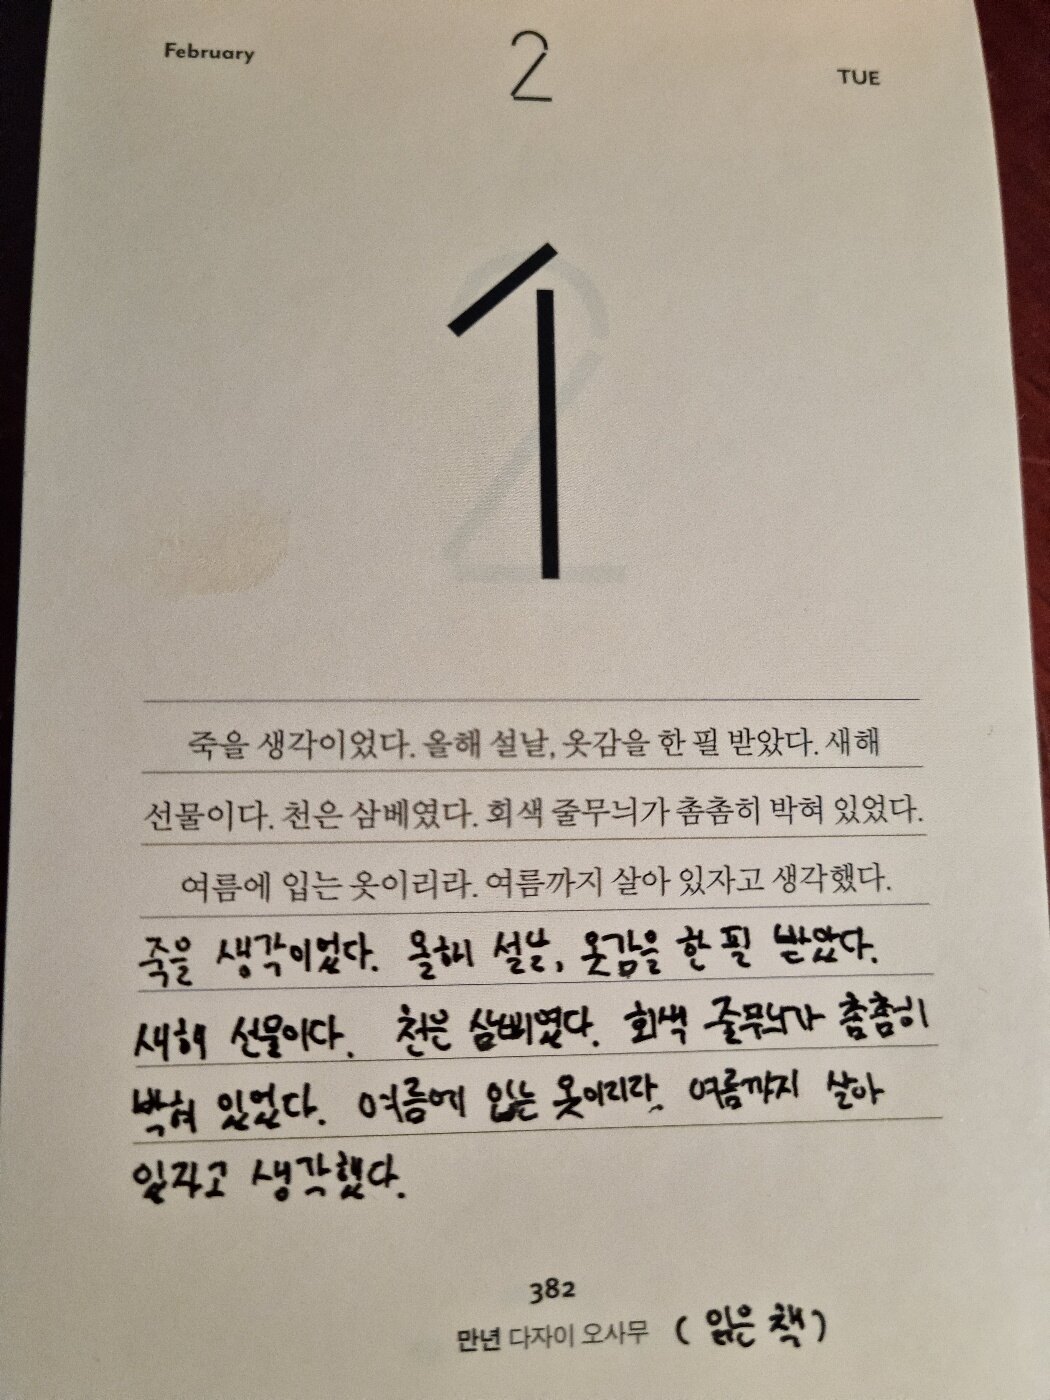 February
2
TUE
1
죽을 생각이었다. 올해 설날, 옷감을 한 필 받았다. 새해
선물이다. 천은 삼베였다. 회색 줄무늬가 촘촘히 박혀 있었다.
여름에 입는 옷이리라. 여름까지 살아 있자고 생각했다.
죽을 생각이었다. 올해 설날, 옷감을 한 필 받았다.
새해 선물이다. 천은 삼베였다. 회색 줄무늬가 촘촘히
박혀 있었다. 여름에 입는 옷이리라. 여름까지 살아
있자고 생각했다.
382
만년 다자이 오사무 (읽은 책)